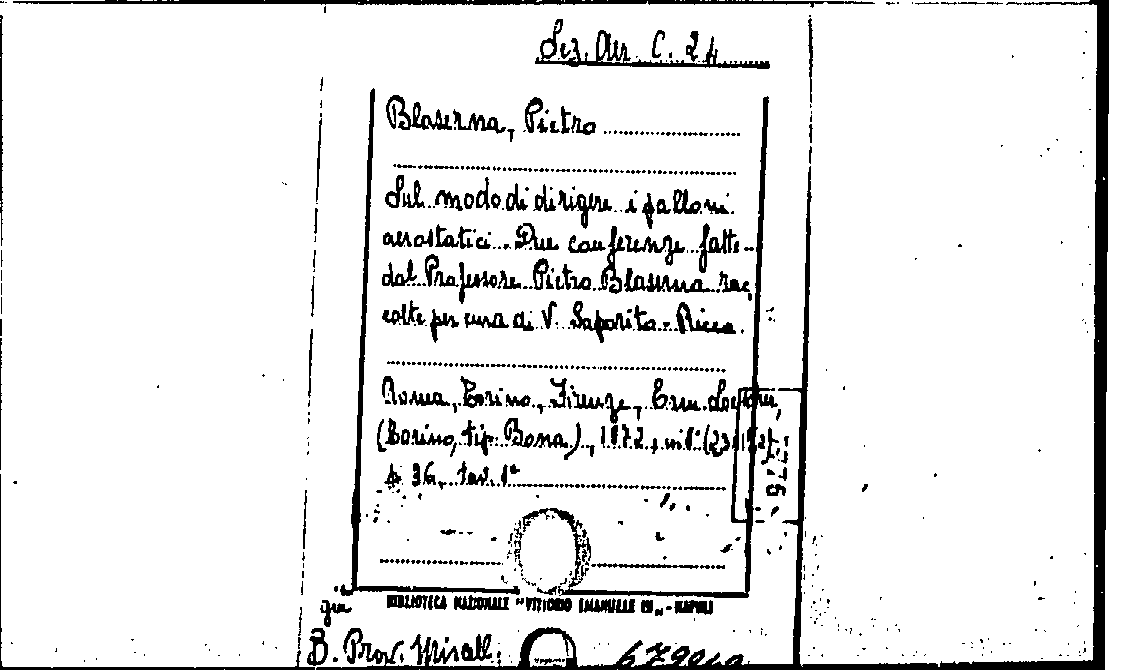 Sez. Aer. C. 24
Blaserna, Pietro
Sul modo di dirigere i palloni
aerostatici. Due conferenze fatte
dal Professore Pietro Blaserna rac
colte per cura di V. Saporito-Ricca.
Roma, Torino, Firenze, Erm. Loescher,
(Torino, tip. Bona), 1872, in 8°
p 36, tav. 1ª
già
BIBLIOTECA NAZIONALE "VITTORIO EMANUELE III" - NAPOLI
B. Prov. Miscell.